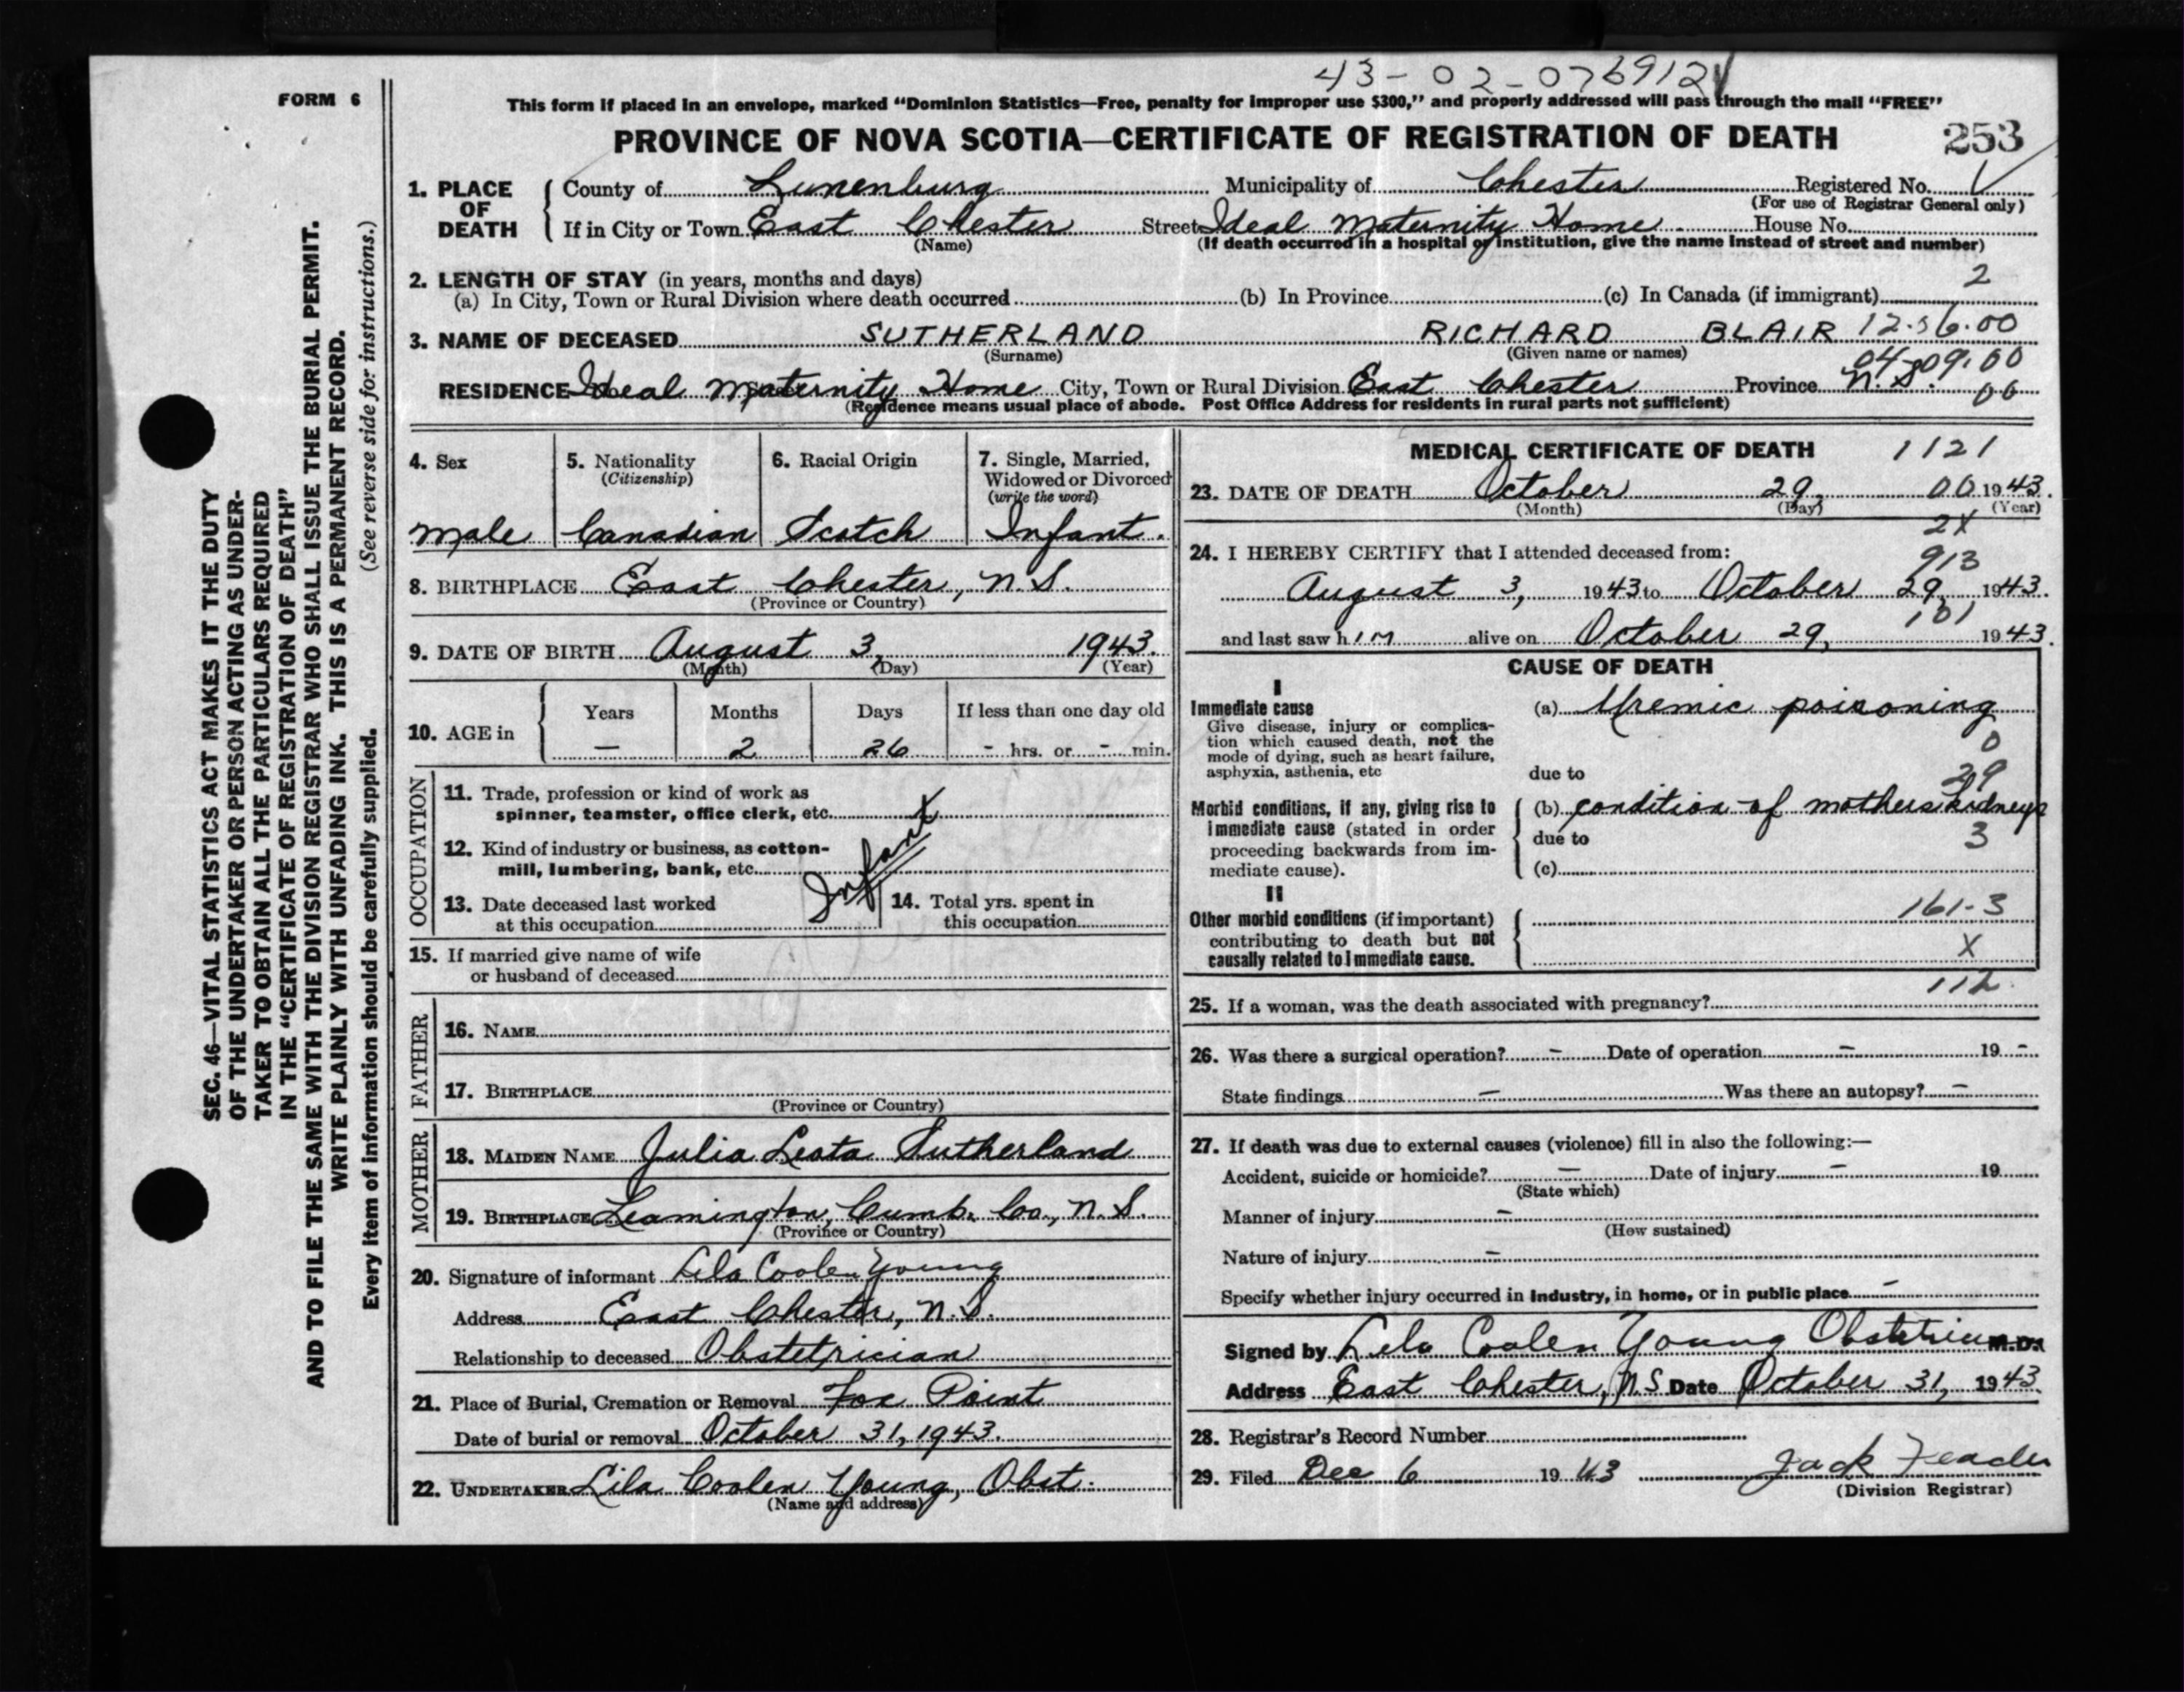 43-02-076912
FORM 6
This form if placed in an envelope, marked "Dominion Statistics—Free, penalty for improper use $300," and properly addressed will pass through the mail "FREE"
PROVINCE OF NOVA SCOTIA—CERTIFICATE OF REGISTRATION OF DEATH 253
1. PLACE OF DEATH
County of Lunenburg Municipality of Chester Registered No.
(For use of Registrar General only)
If in City or Town East Chester Street Ideal Maternity Home House No.
(Name) (If death occurred in a hospital or institution, give the name instead of street and number)
2. LENGTH OF STAY (in years, months and days) 2
(a) In City, Town or Rural Division where death occurred (b) In Province (c) In Canada (if immigrant)
3. NAME OF DECEASED SUTHERLAND RICHARD BLAIR
(Surname) (Given name or names)
RESIDENCE Ideal Maternity Home City, Town or Rural Division East Chester Province N.S.
(Residence means usual place of abode. Post Office Address for residents in rural parts not sufficient)
4. Sex
Male
5. Nationality
(Citizenship)
Canadian
6. Racial Origin
Scotch
7. Single, Married,
Widowed or Divorced
(write the word)
Infant.
8. BIRTHPLACE East Chester, N.S.
(Province or Country)
9. DATE OF BIRTH August 3, 1943.
(Month) (Day) (Year)
10. AGE in
Years Months Days If less than one day old
— 2 26 - hrs. or - min.
OCCUPATION
11. Trade, profession or kind of work as
spinner, teamster, office clerk, etc.
12. Kind of industry or business, as cotton-
mill, lumbering, bank, etc.
Infant
13. Date deceased last worked
at this occupation
14. Total yrs. spent in
this occupation
15. If married give name of wife
or husband of deceased
FATHER
16. NAME
17. BIRTHPLACE
(Province or Country)
MOTHER
18. MAIDEN NAME Julia Leota Sutherland
19. BIRTHPLACE Leamington, Cumb. Co., N.S.
(Province or Country)
20. Signature of informant Lila Coolen Young
Address East Chester, N.S.
Relationship to deceased Obstetrician
21. Place of Burial, Cremation or Removal Fox Point
Date of burial or removal October 31, 1943.
22. UNDERTAKER Lila Coolen Young, Obst.
(Name and address)
MEDICAL CERTIFICATE OF DEATH 1121
23. DATE OF DEATH October 29, 00 1943.
(Month) (Day) (Year)
2X
24. I HEREBY CERTIFY that I attended deceased from:
913
August 3, 1943 to October 29, 1943.
101
and last saw him alive on October 29, 1943.
CAUSE OF DEATH
I
Immediate cause
Give disease, injury or complica-
tion which caused death, not the
mode of dying, such as heart failure,
asphyxia, asthenia, etc
(a) Uremic poisoning
0
due to 29
Morbid conditions, if any, giving rise to
immediate cause (stated in order
proceeding backwards from im-
mediate cause).
(b) condition of mothers kidneys
due to 3
(c)
II
Other morbid conditions (if important)
contributing to death but not
causally related to immediate cause.
161-3
X
112
25. If a woman, was the death associated with pregnancy?
26. Was there a surgical operation? - Date of operation — 19 -
State findings — Was there an autopsy? —
27. If death was due to external causes (violence) fill in also the following:—
Accident, suicide or homicide? — Date of injury - 19
(State which)
Manner of injury -
(How sustained)
Nature of injury —
Specify whether injury occurred in industry, in home, or in public place -
Signed by Lila Coolen Young M.D.
Address East Chester, N.S. Date October 31, 1943.
28. Registrar's Record Number
29. Filed Dec 6 1943 Jack
(Division Registrar)
SEC. 46—VITAL STATISTICS ACT MAKES IT THE DUTY
OF THE UNDERTAKER OR PERSON ACTING AS UNDER-
TAKER TO OBTAIN ALL THE PARTICULARS REQUIRED
IN THE "CERTIFICATE OF REGISTRATION OF DEATH"
AND TO FILE THE SAME WITH THE DIVISION REGISTRAR WHO SHALL ISSUE THE BURIAL PERMIT.
WRITE PLAINLY WITH UNFADING INK. THIS IS A PERMANENT RECORD.
Every item of information should be carefully supplied. (See reverse side for instructions.)